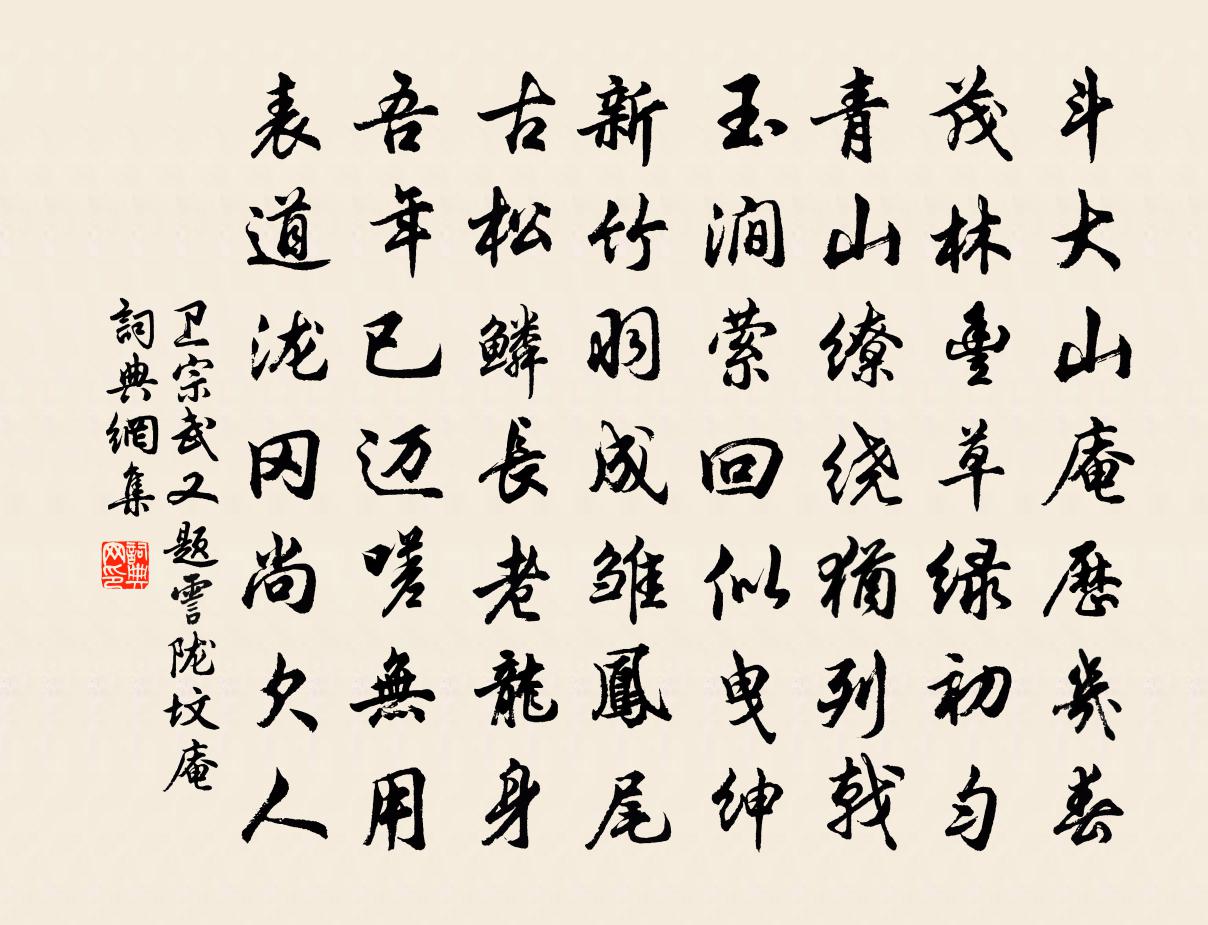 斗大山庵歷幾春
茂林豊草绿初匀
青山缭绕猶列戟
玉澗萦回似曳紳
新竹羽成雏鳳尾
古松鱗長老龍身
吾年已迈嗟無用
表道泷冈尚欠人
卫宗武又題雲陇坟庵
詞典網集
詞典网印